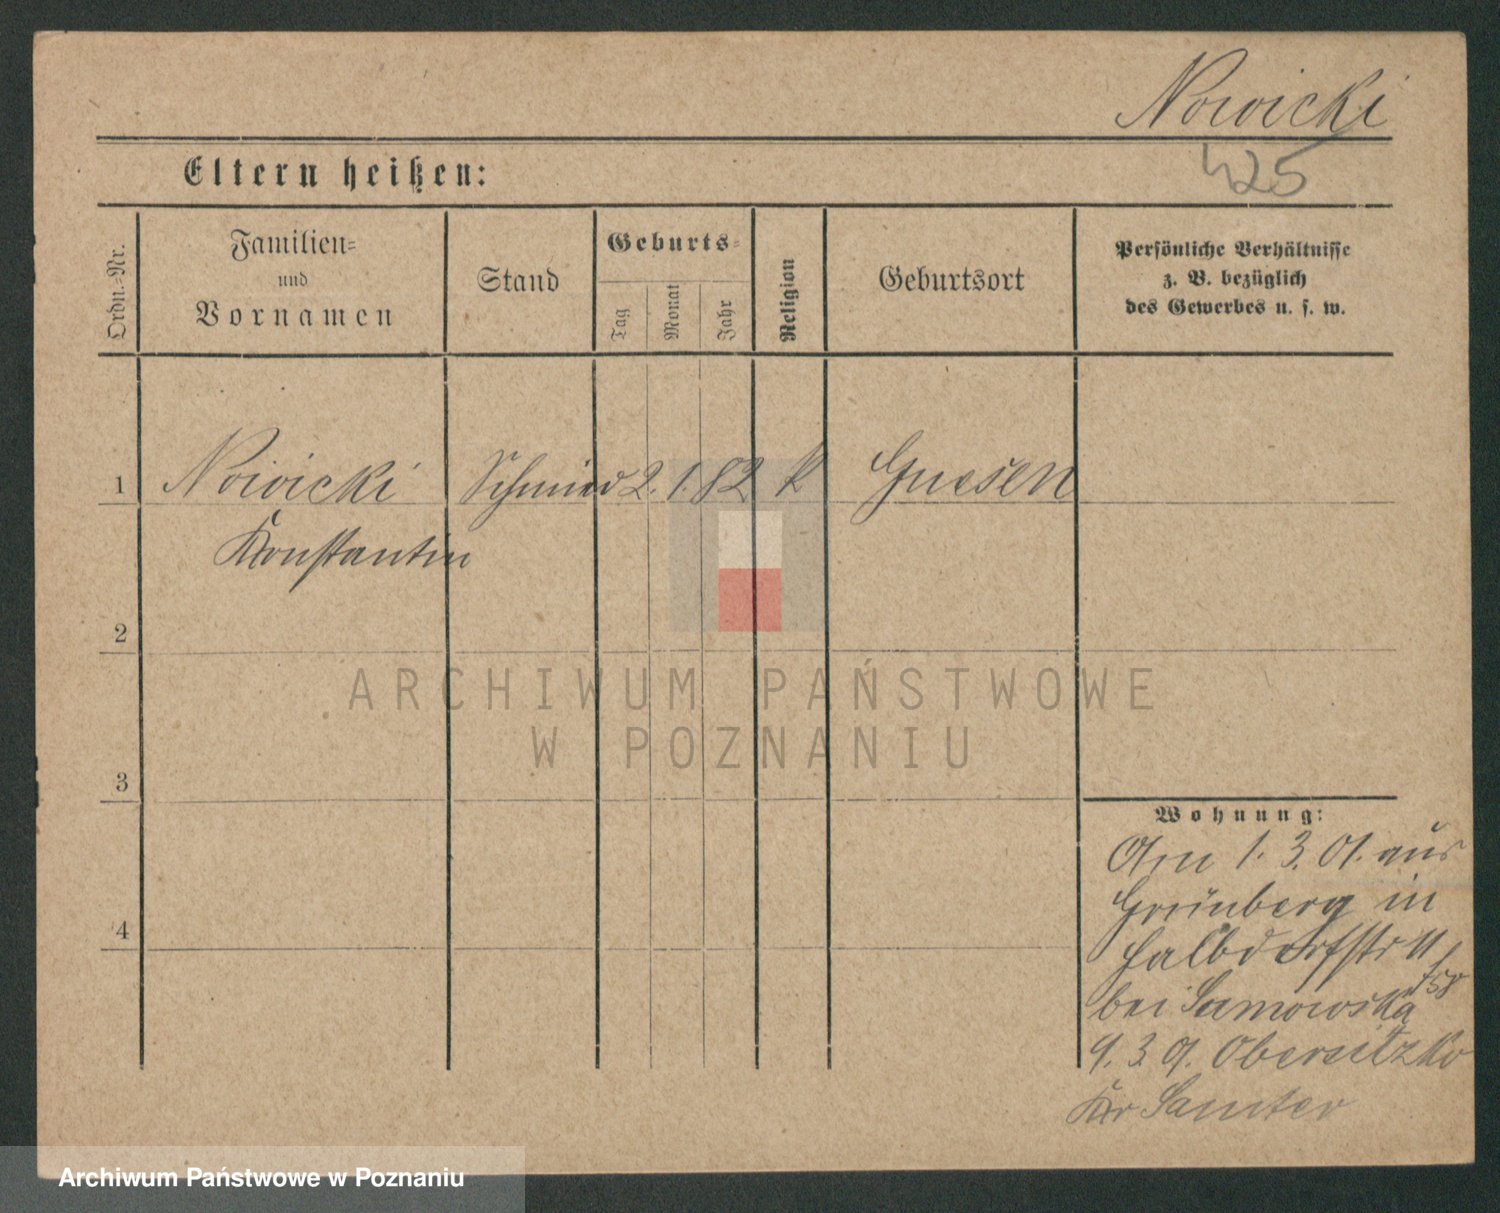 Nowicki
425
Eltern heißen:
Ordn.-Nr.
Familien-
und
Vornamen
Stand
Geburts-
Tag
Monat
Jahr
Religion
Geburtsort
Persönliche Verhältnisse
z. B. bezüglich
des Gewerbes u. s. w.
1
Nowicki Schmied 2. 1. 82 k Gnesen
Konstantin
2
3
4
Wohnung:
Am 1. 3. 01. aus
Grünberg in
Halbdorfstr
bei
9. 3. 01. Obersitzko
Kr Samter
ARCHIWUM PAŃSTWOWE
W POZNANIU
Archiwum Państwowe w Poznaniu